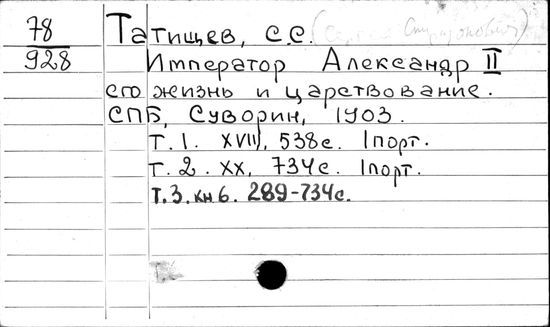 78 Татищев, С.С. (Сергей Спиридонович)
928 Император Александр II
его жизнь и царствование.
СПБ, Суворин, 1903.
Т. 1. XVII, 538с. 1порт.
Т. 2. XX, 734с. 1порт.
Т. 3. кн 6. 289-734с.